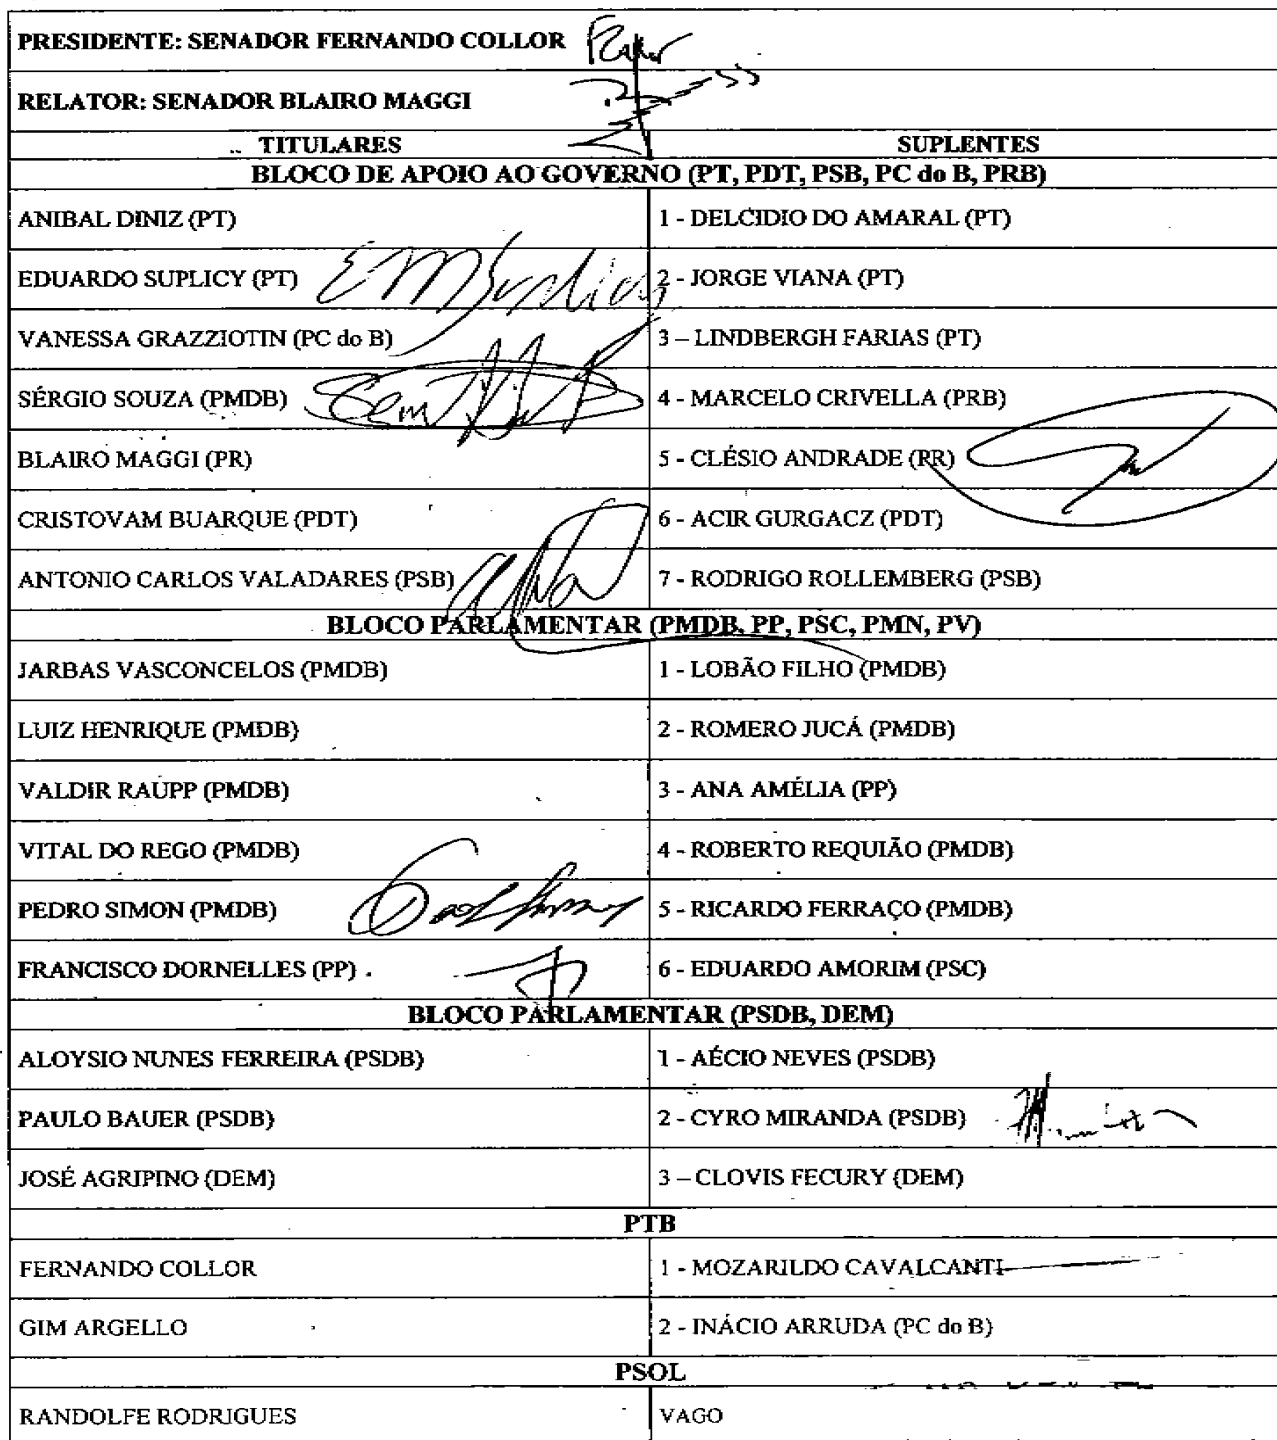 PRESIDENTE: SENADOR FERNANDO COLLOR
RELATOR: SENADOR BLAIRO MAGGI
TITULARES SUPLENTES
BLOCO DE APOIO AO GOVERNO (PT, PDT, PSB, PC do B, PRB)
ANIBAL DINIZ (PT) 1 - DELCIDIO DO AMARAL (PT)
EDUARDO SUPLICY (PT) 2 - JORGE VIANA (PT)
VANESSA GRAZZIOTIN (PC do B) 3 – LINDBERGH FARIAS (PT)
SÉRGIO SOUZA (PMDB) 4 - MARCELO CRIVELLA (PRB)
BLAIRO MAGGI (PR) 5 - CLÉSIO ANDRADE (PR)
CRISTOVAM BUARQUE (PDT) 6 - ACIR GURGACZ (PDT)
ANTONIO CARLOS VALADARES (PSB) 7 - RODRIGO ROLLEMBERG (PSB)
BLOCO PARLAMENTAR (PMDB, PP, PSC, PMN, PV)
JARBAS VASCONCELOS (PMDB) 1 - LOBÃO FILHO (PMDB)
LUIZ HENRIQUE (PMDB) 2 - ROMERO JUCÁ (PMDB)
VALDIR RAUPP (PMDB) 3 - ANA AMÉLIA (PP)
VITAL DO REGO (PMDB) 4 - ROBERTO REQUIÃO (PMDB)
PEDRO SIMON (PMDB) 5 - RICARDO FERRAÇO (PMDB)
FRANCISCO DORNELLES (PP) 6 - EDUARDO AMORIM (PSC)
BLOCO PARLAMENTAR (PSDB, DEM)
ALOYSIO NUNES FERREIRA (PSDB) 1 - AÉCIO NEVES (PSDB)
PAULO BAUER (PSDB) 2 - CYRO MIRANDA (PSDB)
JOSÉ AGRIPINO (DEM) 3 – CLOVIS FECURY (DEM)
PTB
FERNANDO COLLOR 1 - MOZARILDO CAVALCANTI
GIM ARGELLO 2 - INÁCIO ARRUDA (PC do B)
PSOL
RANDOLFE RODRIGUES VAGO